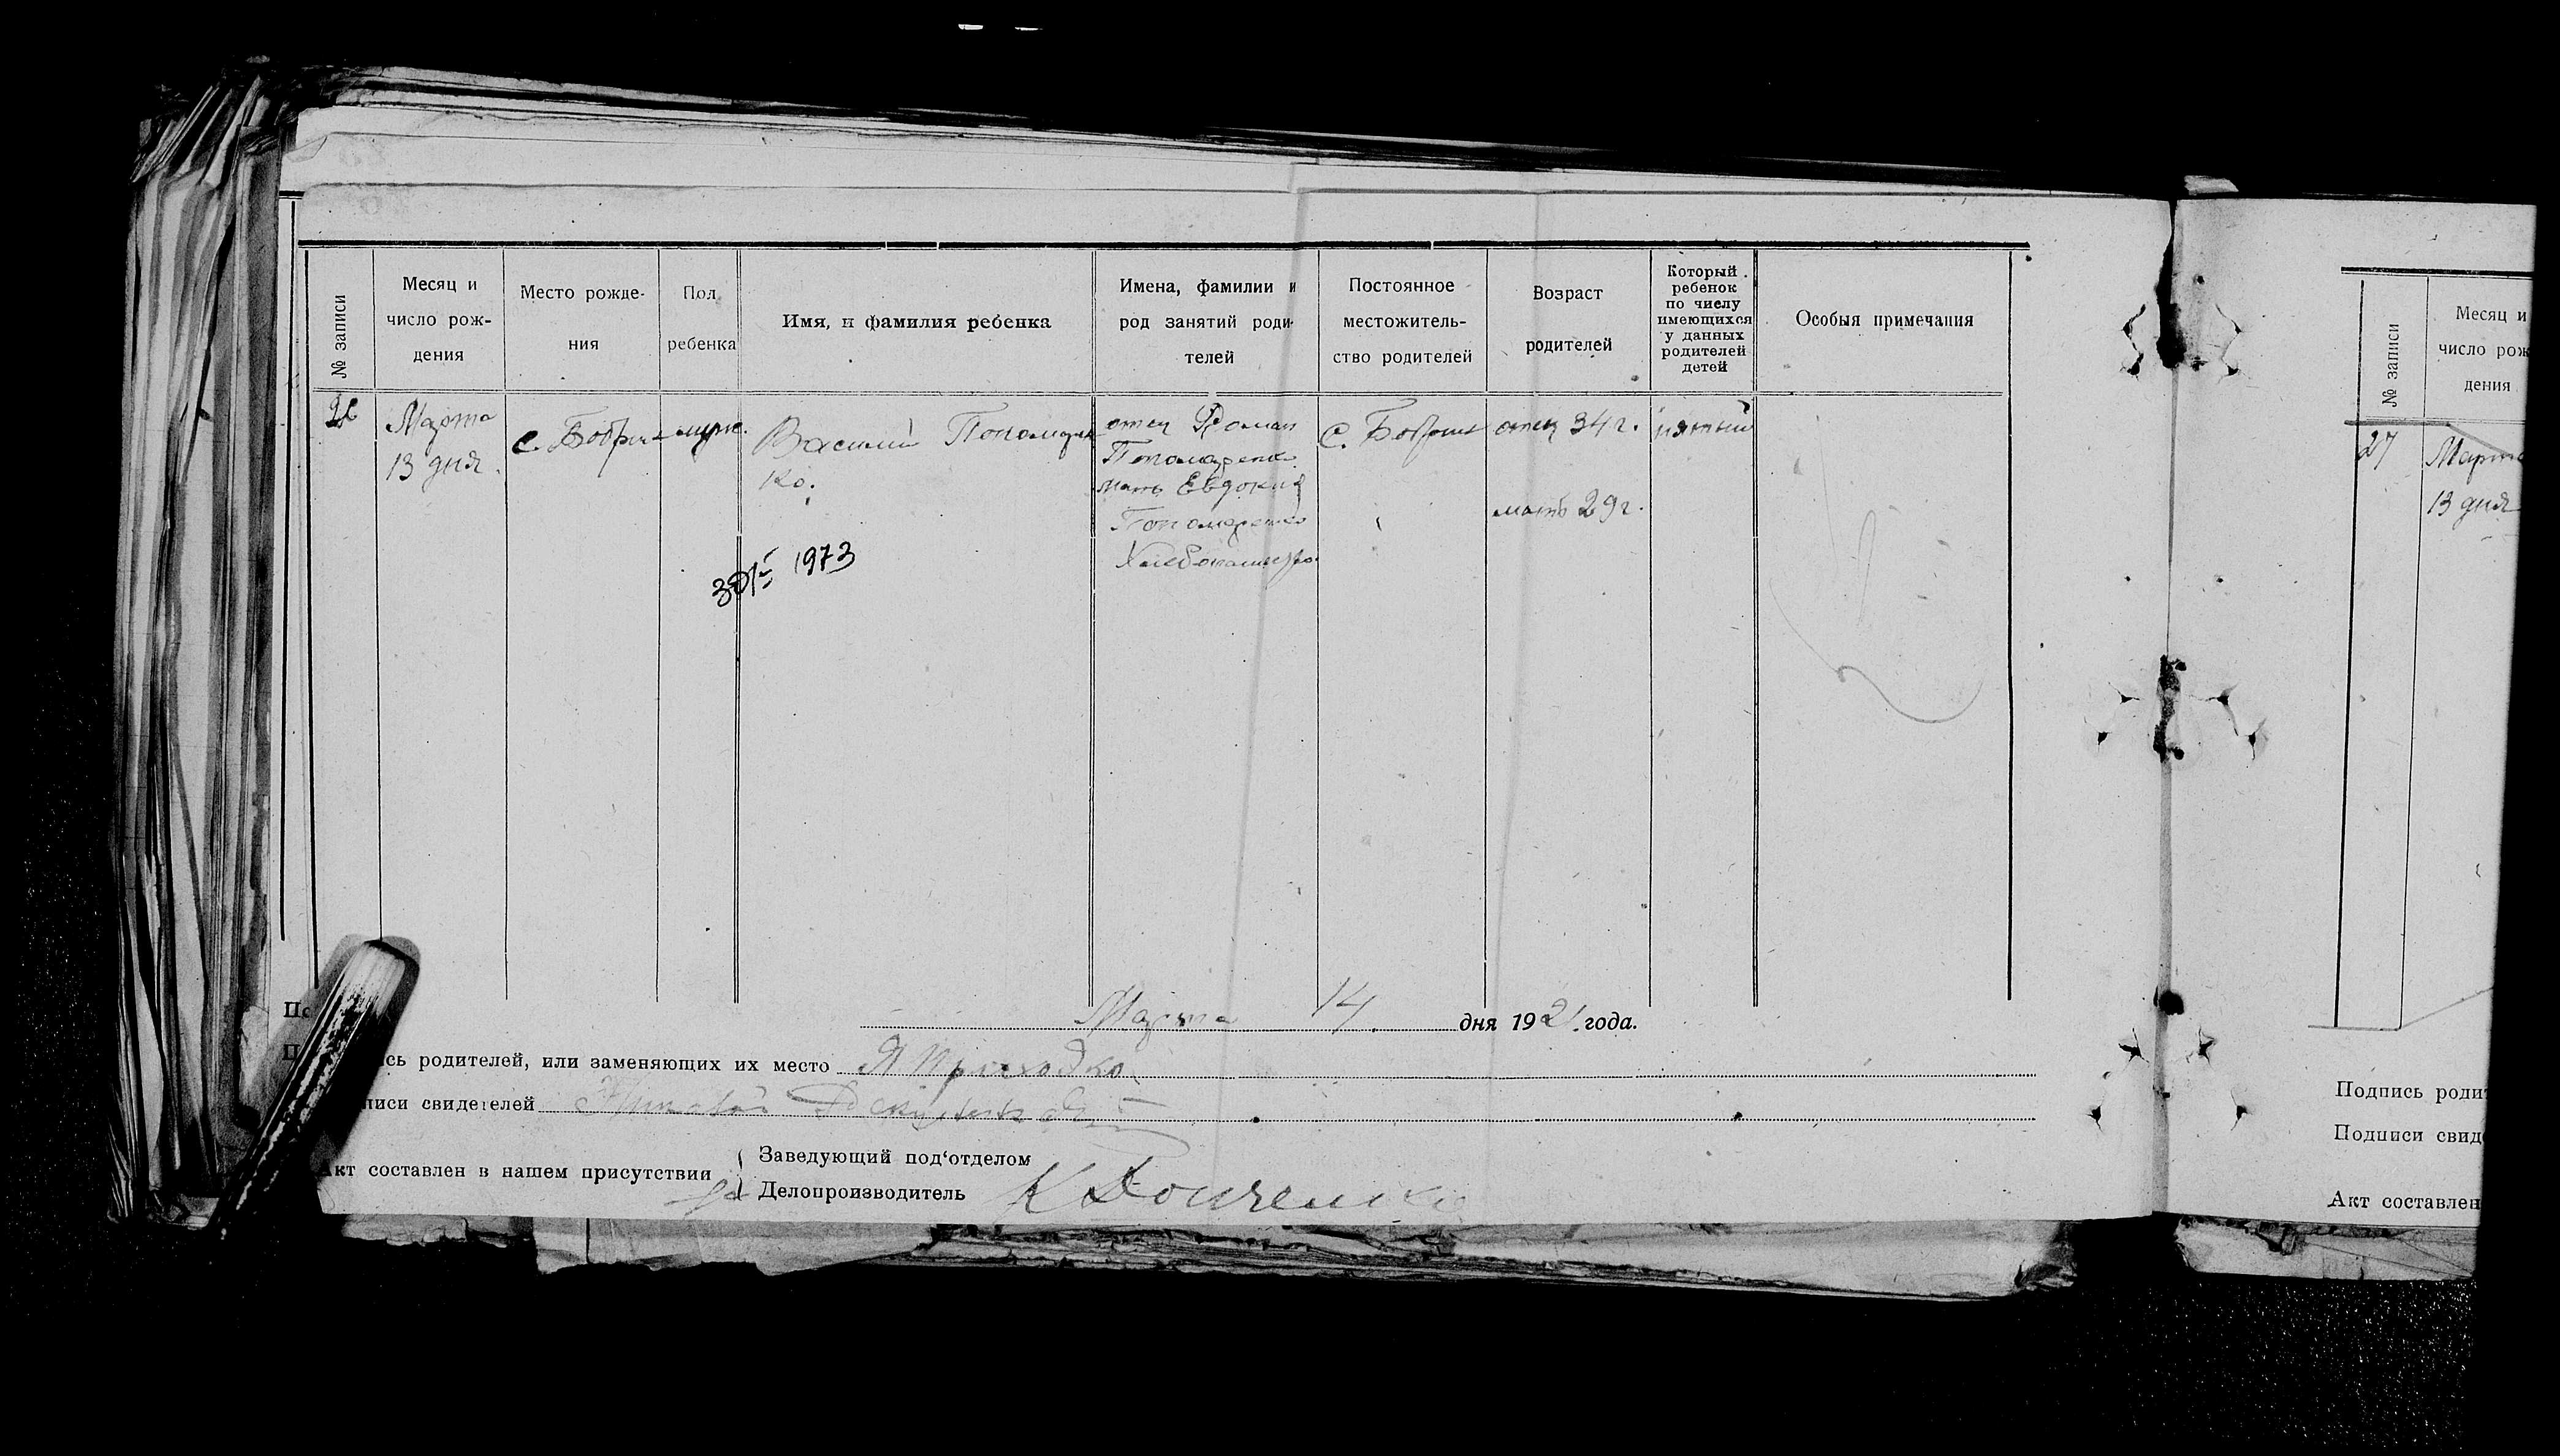 № записи
Месяц и
число рож-
дения
Место рожде-
ния
Пол
ребенка
Имя, и фамилия ребенка
Имена, фамилии и
род занятий роди-
телей
Постоянное
местожитель-
ство родителей
Возраст
родителей
Который
ребенок
по числу
имеющихся
у данных
родителей
детей
Особыя примечания
26
Марта
13 дня.
с. Бобрик
муж.
Василий Пономарен
ко.
отец Роман
Пономаренко
мать Евдокия
Пономаренко
Хлебопашество.
с. Бобрик
отец 34 г.
мать 29 г.
пятый
1973
Марта 14 дня 1921. года.
сь родителей, или заменяющих их место Я Приходко
писи свидетелей
Акт составлен в нашем присутствии
Заведующий под'отделом
Делопроизводитель
№ записи
Месяц и
число рож
дения
27
Марта
13 дня
Подпись роди
Подписи свид
Акт составлен